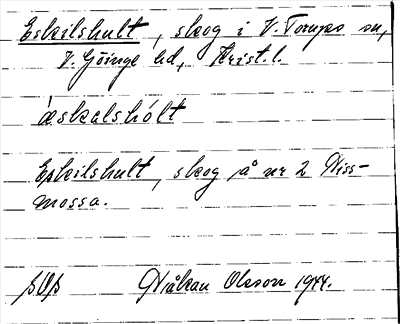 Eskilshult, skog i V. Torups sn,
V. Göinge hd, Krist. l.
æskalshólt
Eskilshult, skog å nr 2 Niss-
mossa.
Håkan Olsson 1944.